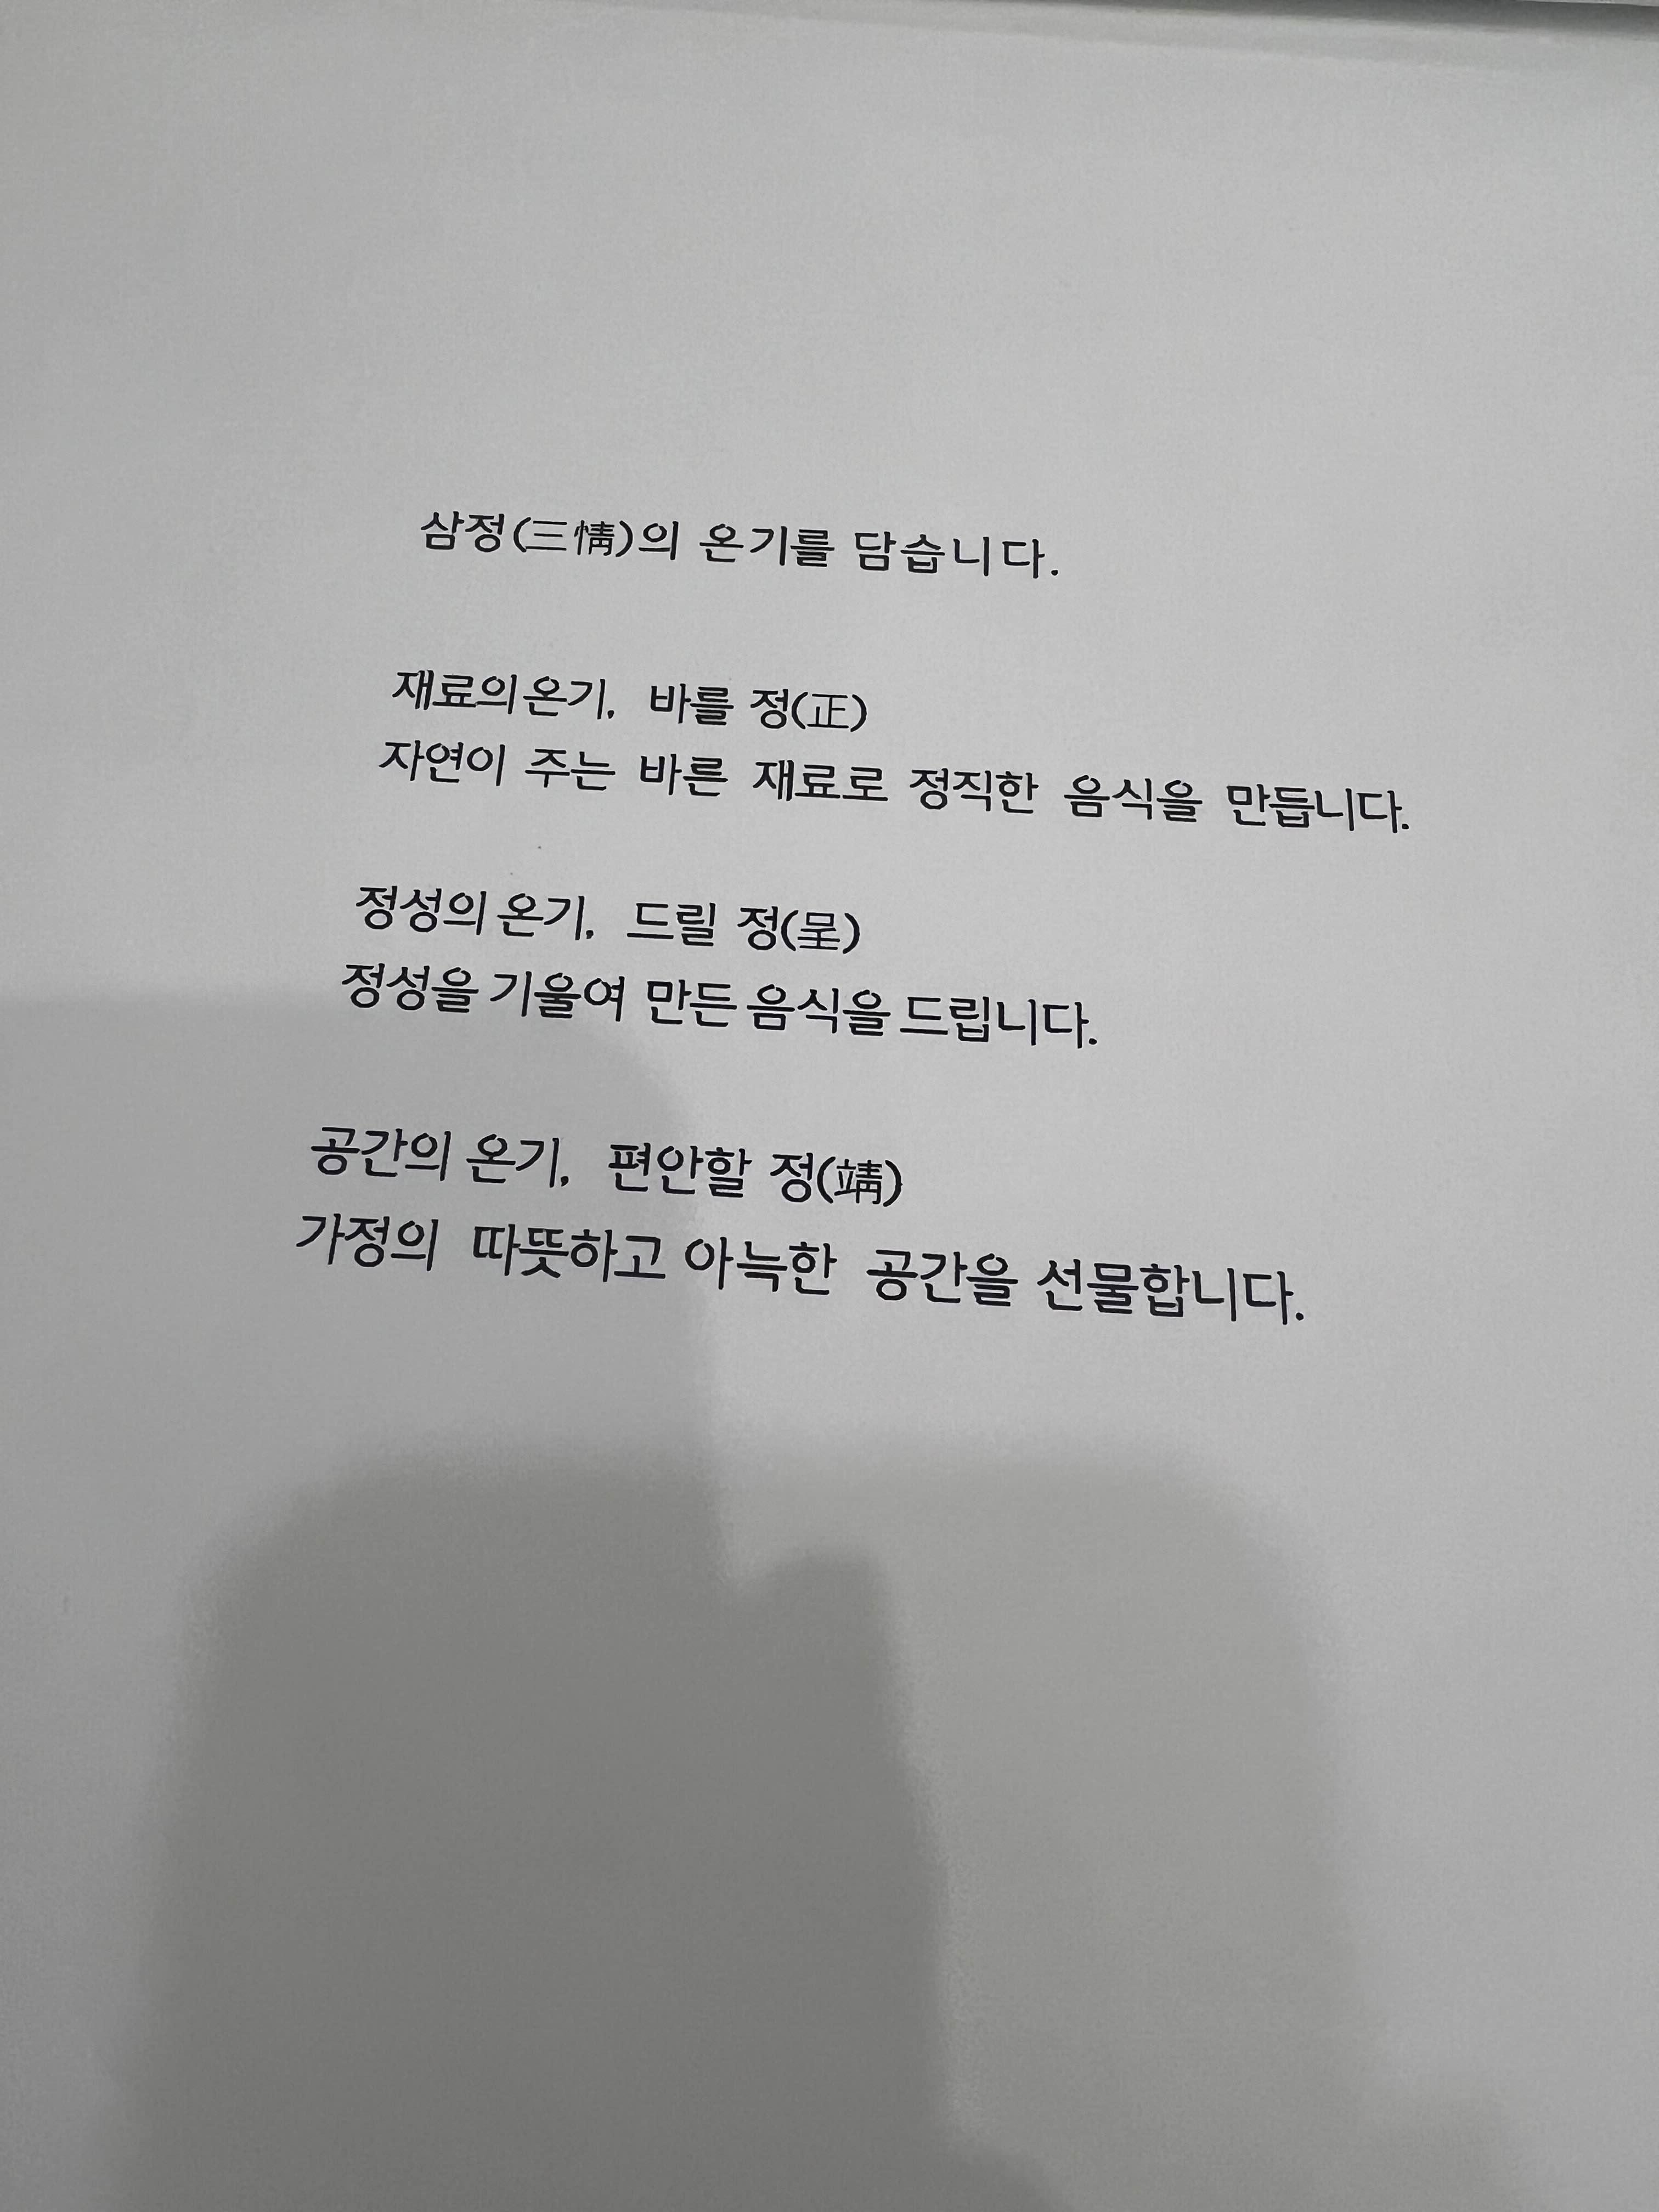 삼정(三情)의 온기를 담습니다.
재료의온기, 바를 정(正)
자연이 주는 바른 재료로 정직한 음식을 만듭니다.
정성의 온기, 드릴 정(呈)
정성을 기울여 만든 음식을 드립니다.
공간의 온기, 편안할 정(靖)
가정의 따뜻하고 아늑한 공간을 선물합니다.